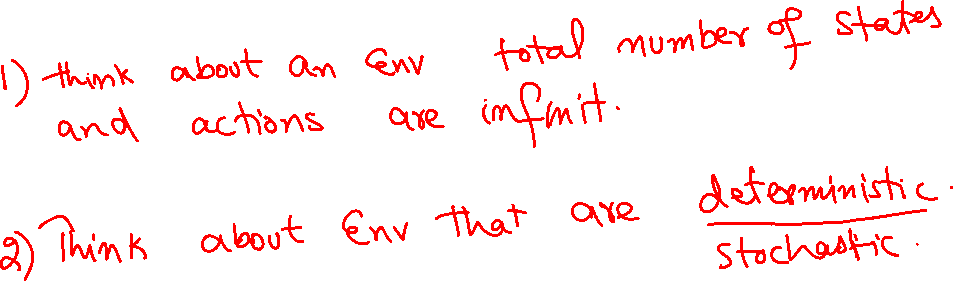 1) think about an Env total number of states
and actions are infinit.
2) Think about Env that are deterministic.
stochastic.